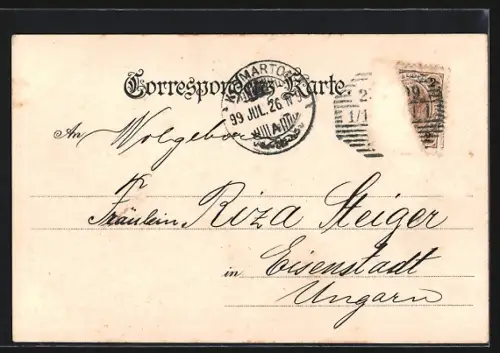 Correspondenz-Karte.
KISMARTON
99 JUL. 26
An Wolgeboren
Fräulein Riza Steiger
in Eisenstadt
Ungarn